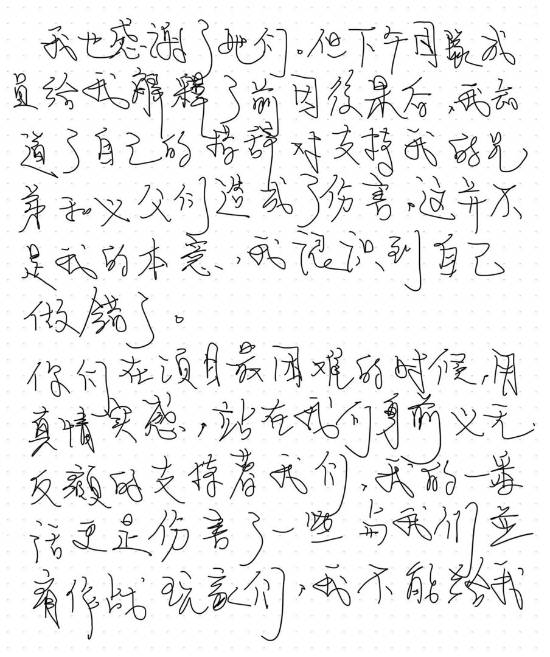 我也感谢了她们。但下午团队成
员给我解释了前因後果后,我知
道了自己的措辞对支持我的兄
弟和义父们造成了伤害,这并不
是我的本意,我认识到自己
做错了。
你们在项目最困难的时候,用
真情实感,站在我们身前义无
反顾的支持着我们,我的一番
话更是伤害了一些与我们並
肩作战玩家们,我不能给我